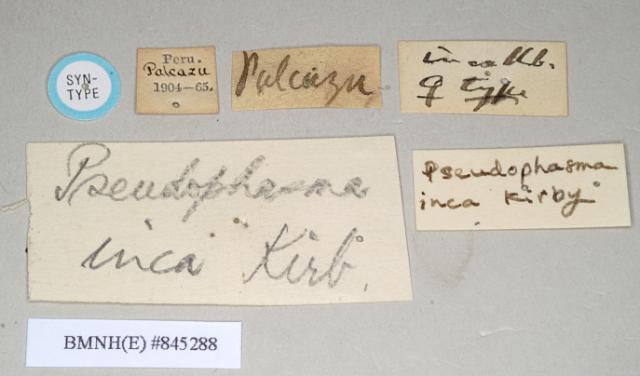 SYN-
TYPE
Peru.
Palcazu
1904—65.
Palcazu
inca Kb.
♀ type
Pseudophasma
inca Kirb.
Pseudophasma
inca Kirby
BMNH(E) #845288